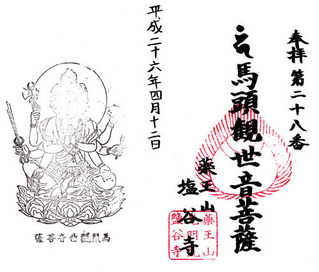 奉拝第二十八番
馬頭観世音菩薩
薬王山
塩谷寺
薬王山
鹽谷寺
平成二十六年四月十二日
馬頭観世音菩薩